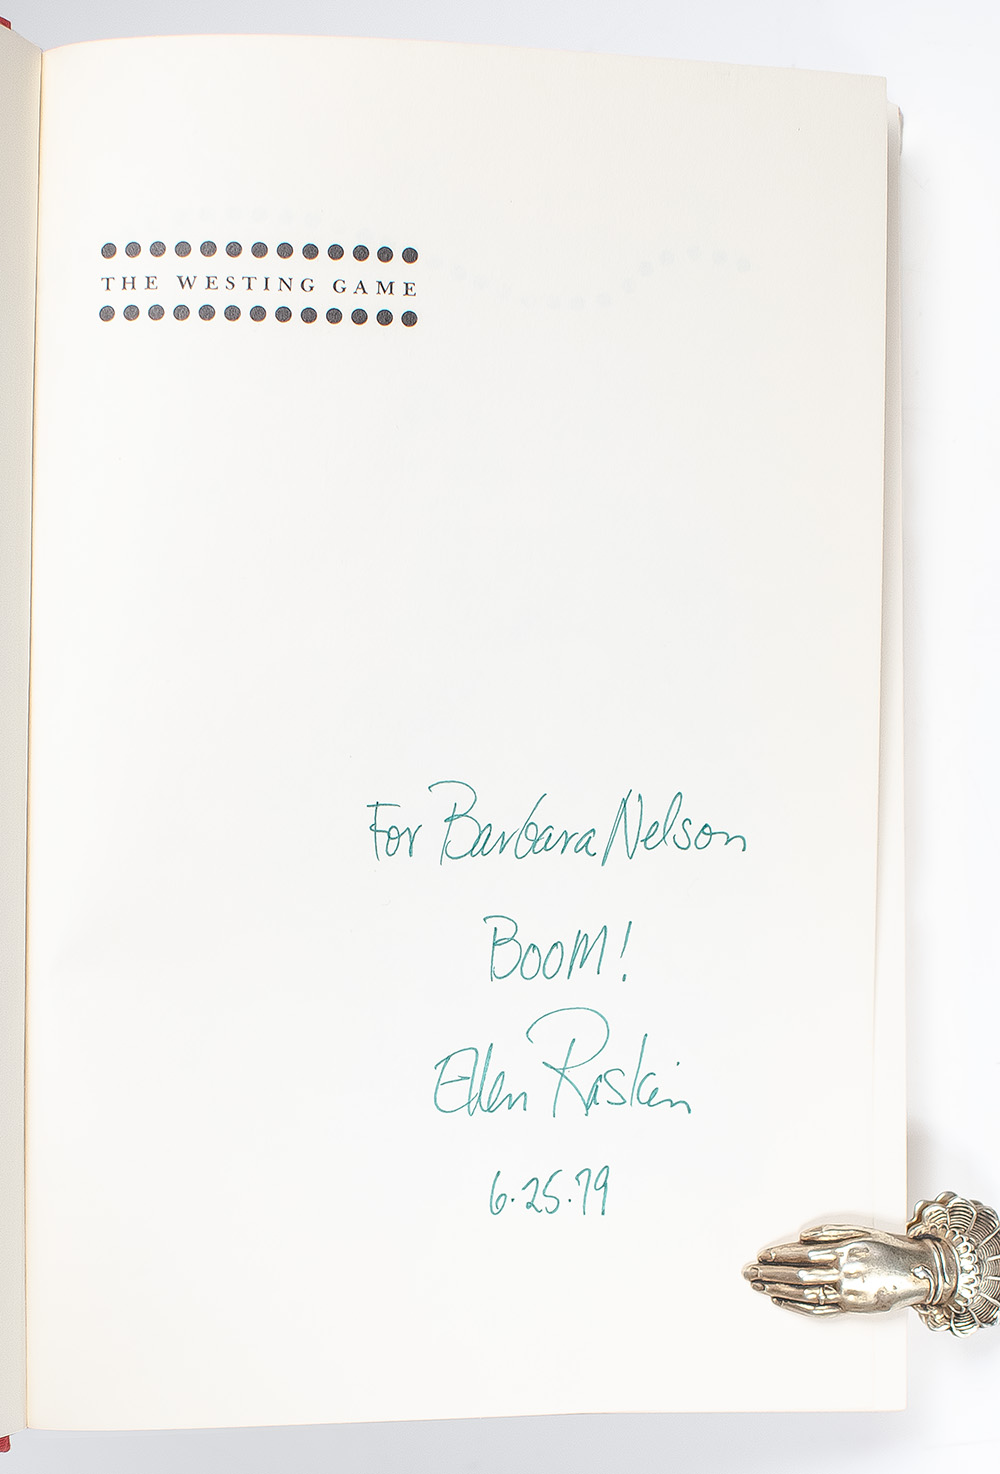 THE WESTING GAME
For Barbara Nelson
BOOM!
Ellen Raskin
6.25.79